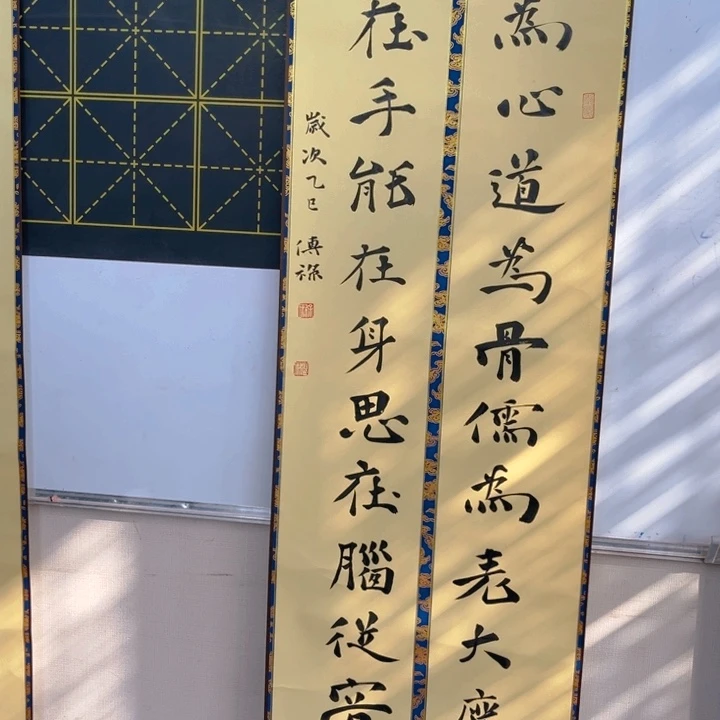 為心道為骨儒為表大
在手能在身思在腦從容
歲次乙巳
傳祿